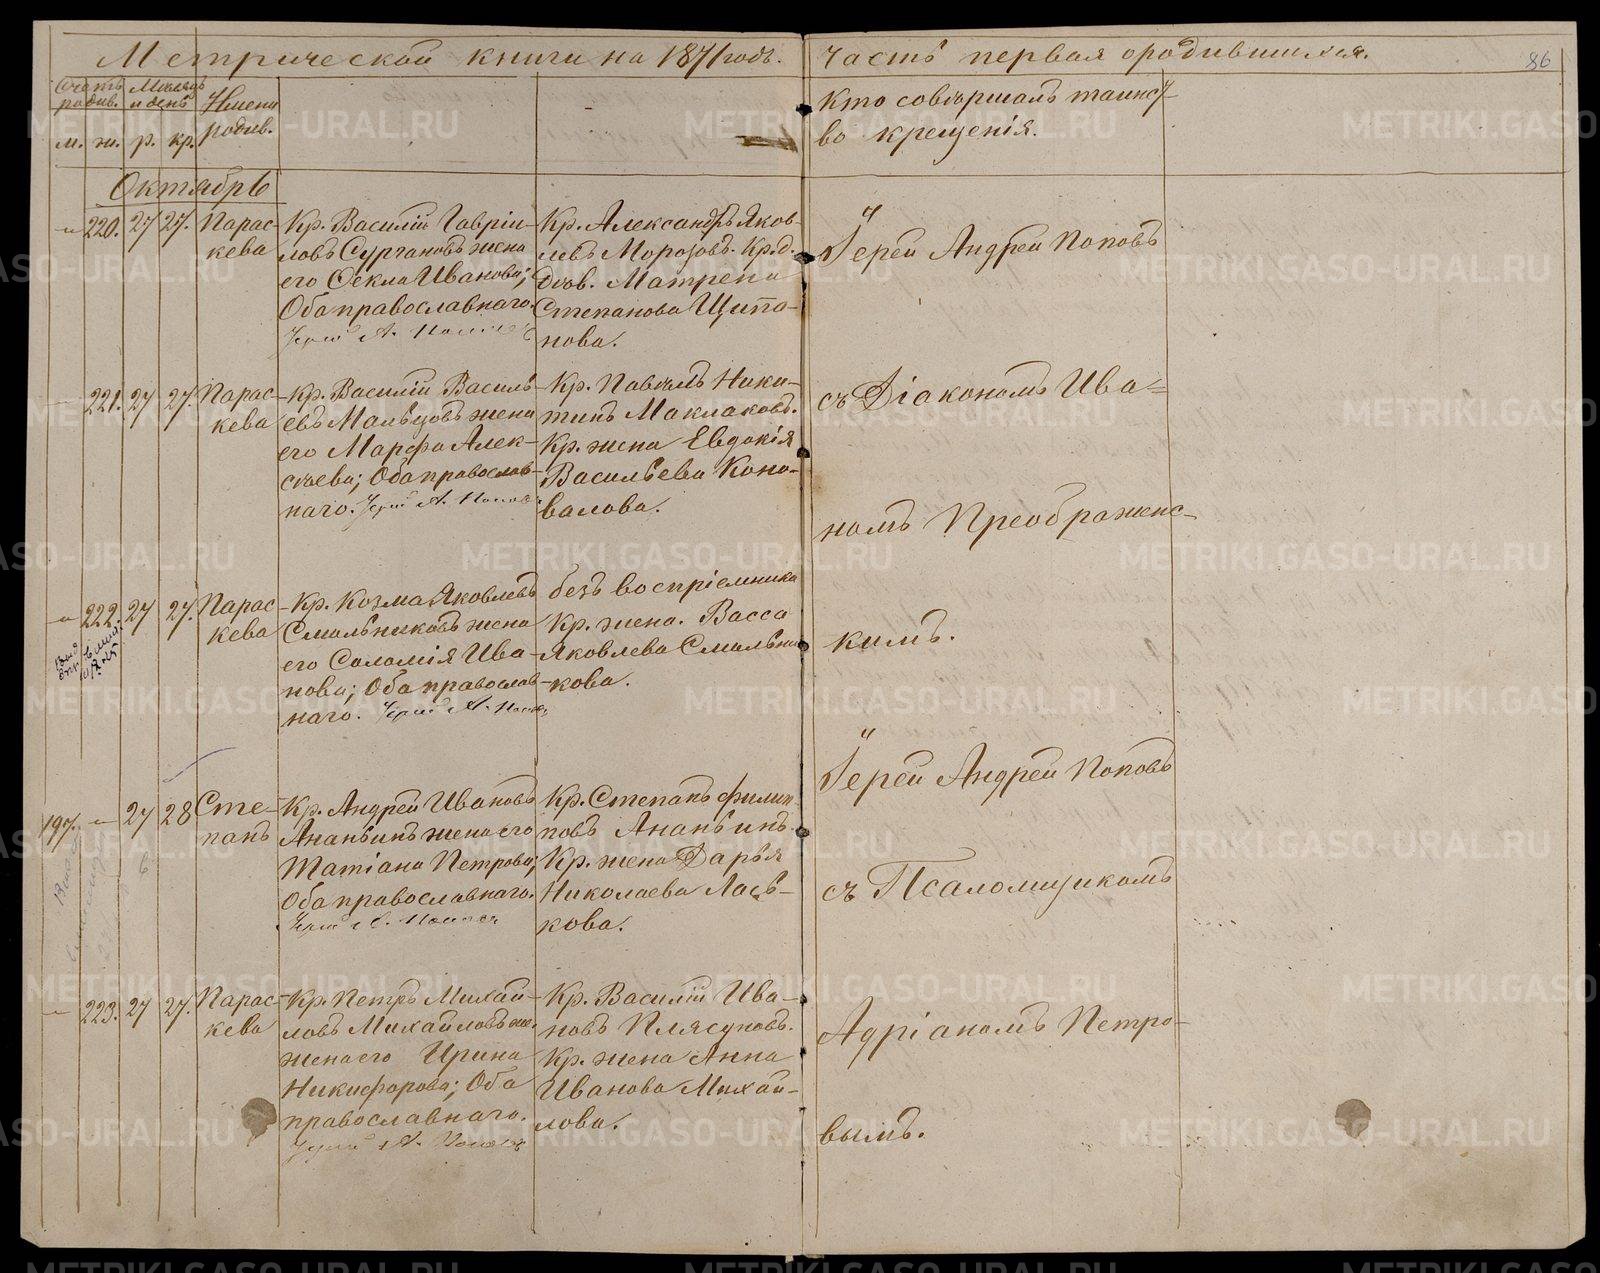 Метрической книги на 1871 годъ.
часть первая о родившихся.
86
Счетъ родив.
Месяцъ и день
Имена родив.
м. ж. р. кр.
Кто совершалъ таинст-
во крещенія.
Октябрь
220. 27 27. Парас-
кева
Кр. Василій Гаврии-
ловъ Сургановъ жена
его Фекла Иванова;
Оба православнаго.
Кр. Александръ Яков-
левъ Морозовъ. Кр. д.
Матрена
Степанова Щипа-
нова.
Іерей Андрей Поповъ
221. 27 27. Парас-
кева
Кр. Василій Василь-
евъ Мальцовъ жена
его Марфа Алек-
сѣева; Оба православ-
наго. Іерей А. Поповъ
Кр. Павелъ Ники-
тинъ Маклаковъ.
Кр. жена Евдокія
Васильева Коно-
валова.
съ Діакономъ Ива-
номъ Преображенс-
222. 27 27. Парас-
кева
Кр. Козма Яковлевъ
Смольниковъ жена
его Саломія Ива-
нова; Оба православ-
наго. Іерей А. Поповъ
безъ воспріемника
Кр. жена. Васса
Яковлева Смольни-
кова.
кимъ.
197. 27 28 Сте-
панъ
Кр. Андрей Ивановъ
Ананьинъ жена его
Татіана Петрова;
Оба православнаго.
Кр. Степанъ Филип-
повъ Ананьинъ
Кр. жена Дарья
Николаева Лась-
кова.
Іерей Андрей Поповъ
съ Псаломщикомъ
223. 27 27. Парас-
кева
Кр. Петръ Михай-
ловъ Михайловъ же.
жена его Ирина
Никифорова; Оба
православнаго.
Іерей А. Поповъ
Кр. Василій Ива-
новъ Плясуновъ.
Кр. жена Анна
Иванова Михай-
лова.
Адріаномъ Петро-
вымъ.
METRIKI.GASO-URAL.RU